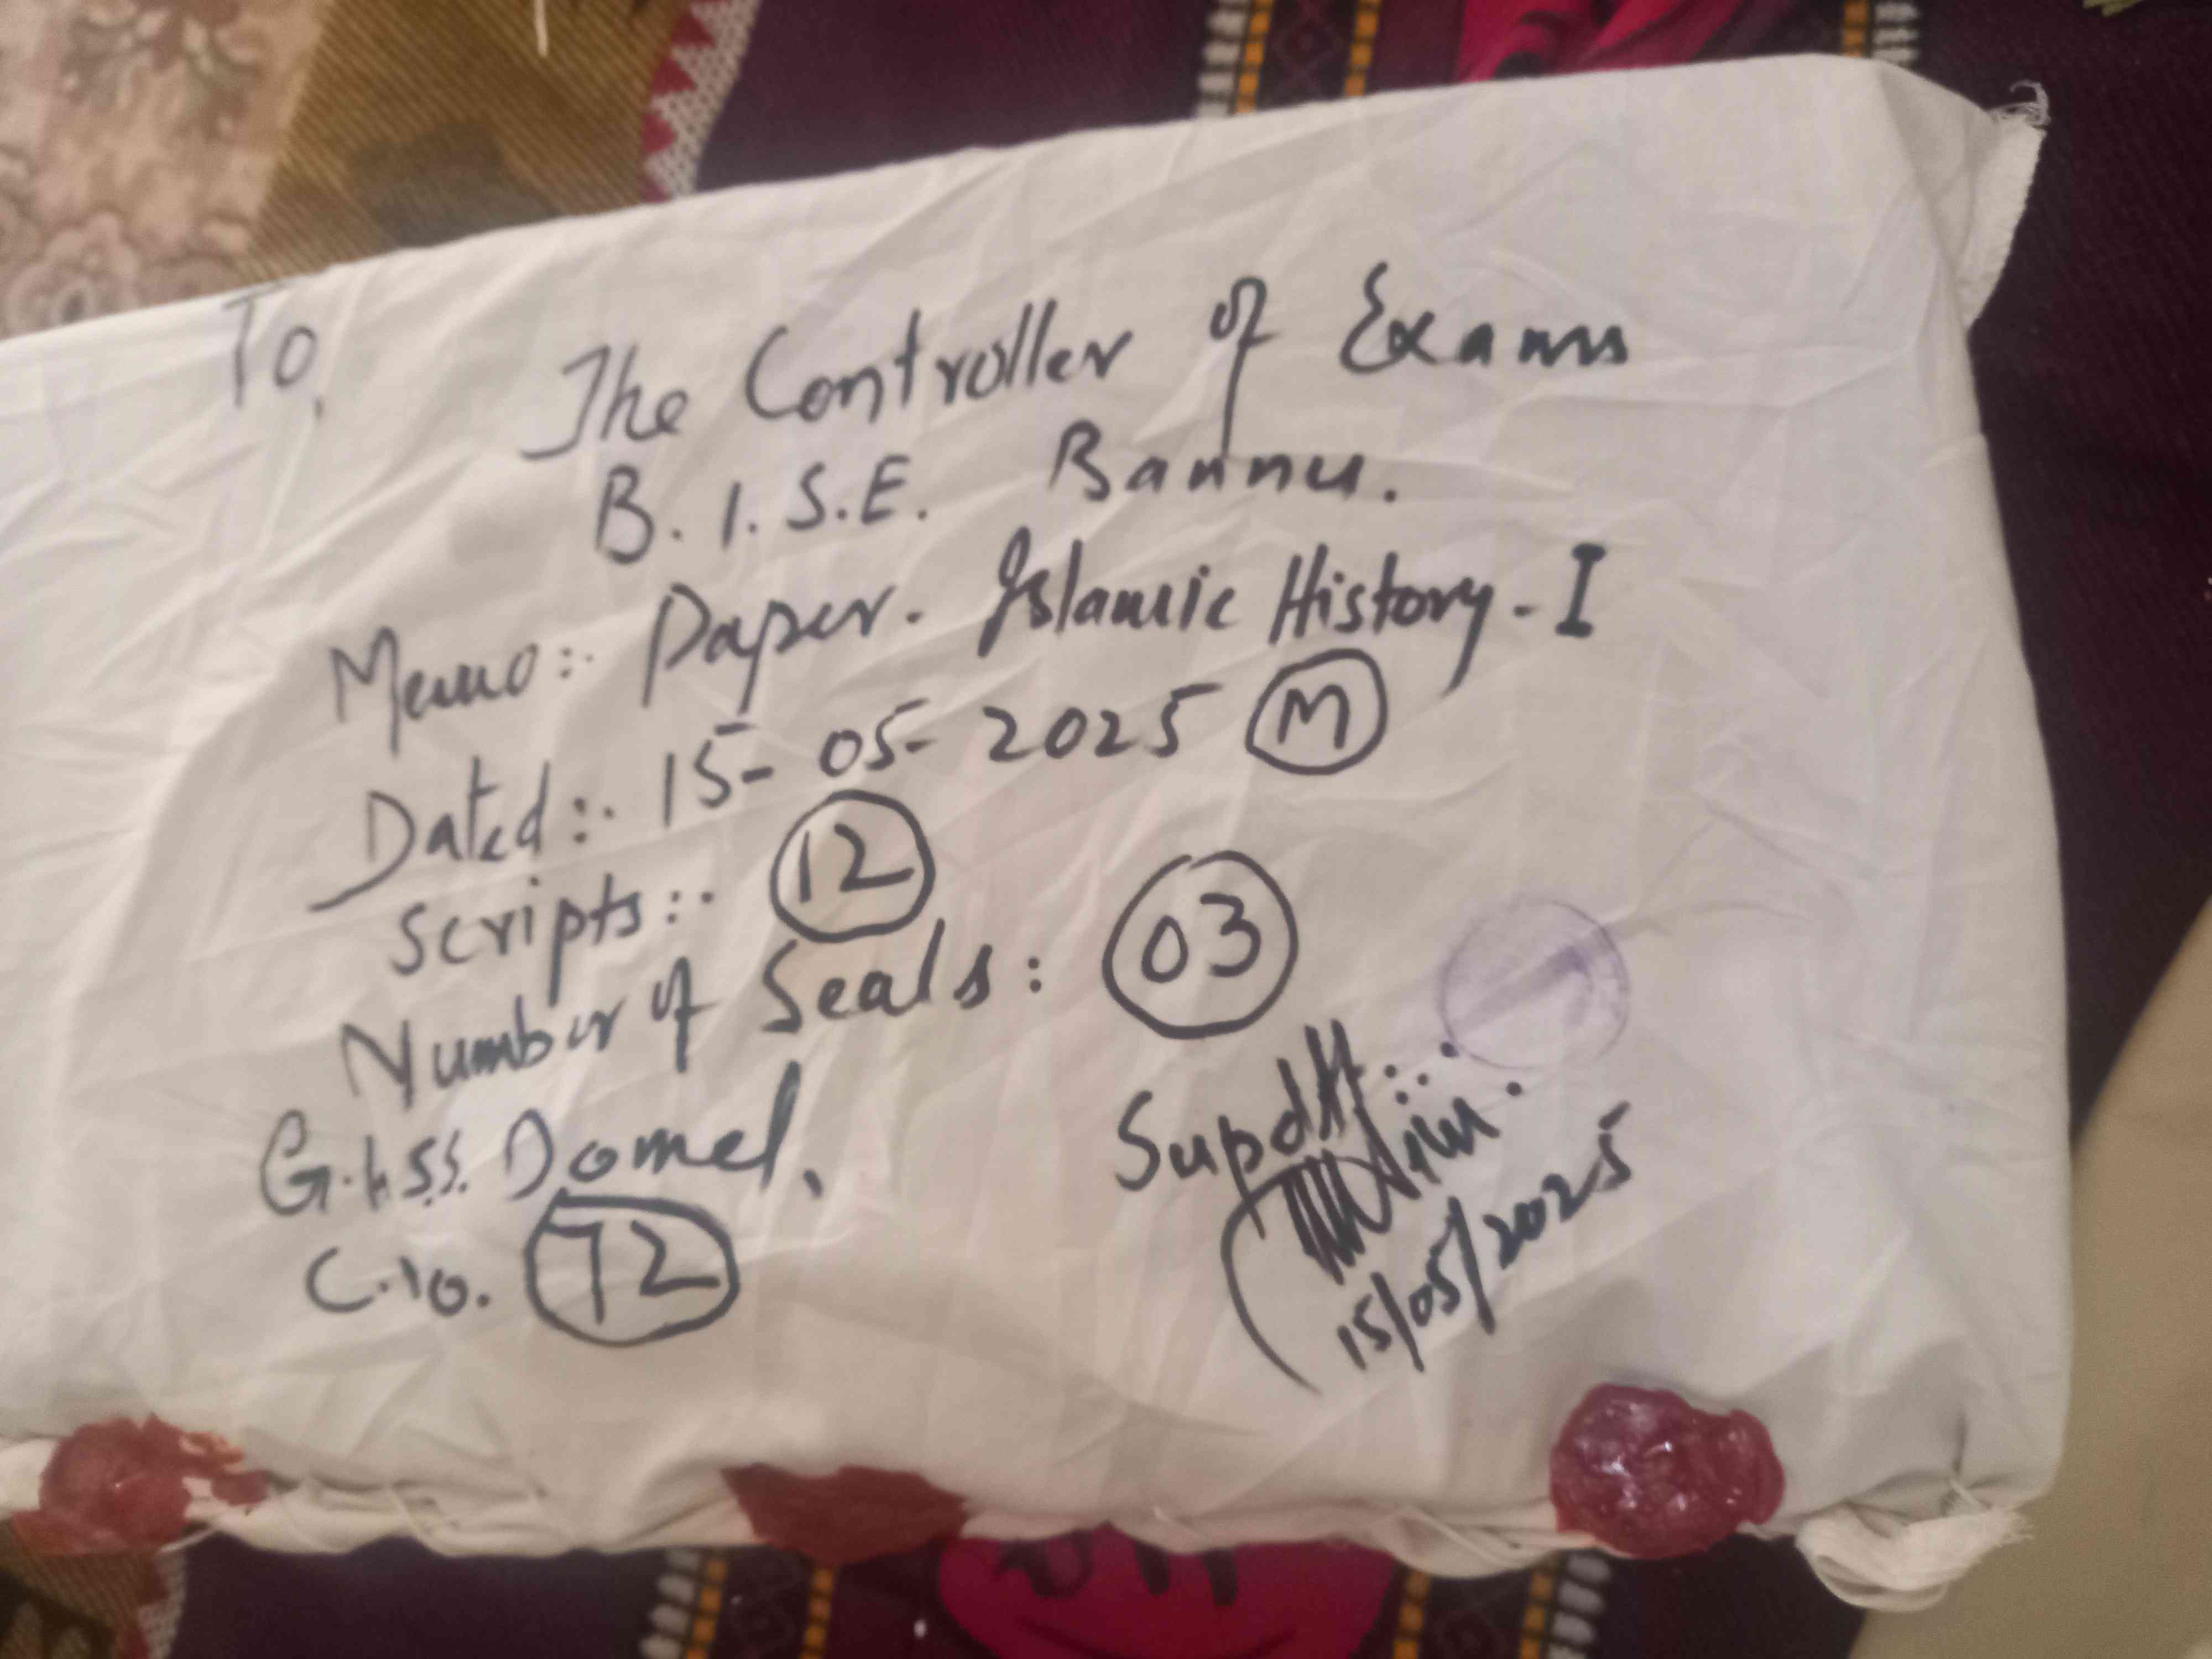 To,
The Controller of Exams
B.I.S.E. Bannu.
Memo:. Paper. Islamic History - I
Dated:. 15-05-2025 M
Scripts:. 12
Number of Seals: 03
G.H.S.S. Domel.
C.No. 72
Supdtt:.
15/05/2025